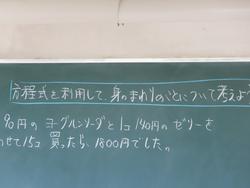 方程式を利用して、身のまわりのことについて考えよう
90円のヨーグルンソーダと1コ140円のゼリーを
わせて15コ買ったら、1800円でした。